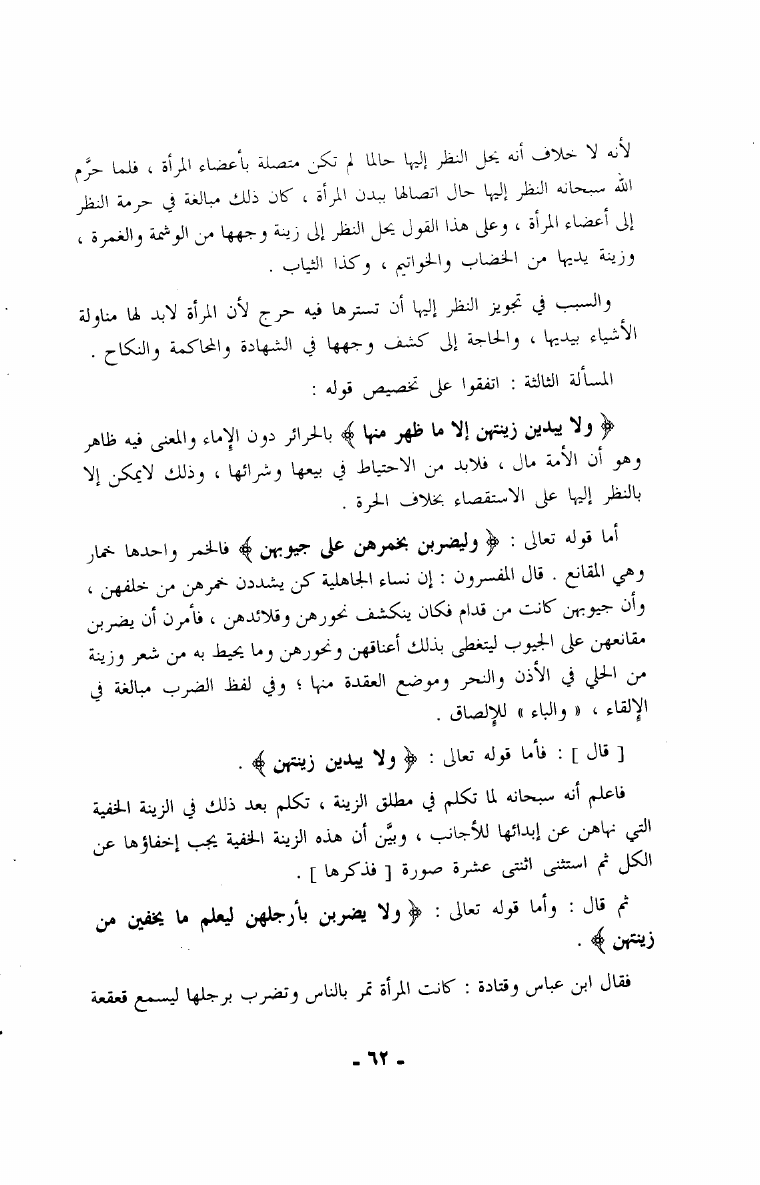 لأنه لا خلاف أنه يحل النظر إليها حالما لم تكن متصلة بأعضاء المرأة ، فلما حرَّم
الله سبحانه النظر إليها حال اتصالها ببدن المرأة ، كان ذلك مبالغة في حرمة النظر
إلى أعضاء المرأة ، وعلى هذا القول يحل النظر إلى زينة وجهها من الوشمة والغمرة ،
وزينة يديها من الخضاب والخواتيم ، وكذا الثياب .
والسبب في تجويز النظر إليها أن تسترها فيه حرج لأن المرأة لابد لها مناولة
الأشياء بيديها ، والحاجة إلى كشف وجهها في الشهادة والمحاكمة والنكاح .
المسألة الثالثة : اتفقوا على تخصيص قوله :
﴿ ولا يبدين زينتهن إلا ما ظهر منها ﴾ بالحرائر دون الإماء والمعنى فيه ظاهر
وهو أن الأمة مال ، فلابد من الاحتياط في بيعها وشرائها ، وذلك لايمكن إلا
بالنظر إليها على الاستقصاء بخلاف الحرة .
أما قوله تعالى : ﴿ وليضربن بخمرهن على جيوبهن ﴾ فالخمر واحدها خمار
وهي المقانع . قال المفسرون : إن نساء الجاهلية كن يشددن خمرهن من خلفهن ،
وأن جيوبهن كانت من قدام فكان ينكشف نحورهن وقلائدهن ، فأمرن أن يضربن
مقانعهن على الجيوب ليتغطى بذلك أعناقهن ونحورهن وما يحيط به من شعر وزينة
من الحلي في الأذن والنحر وموضع العقدة منها ؛ وفي لفظ الضرب مبالغة في
الإلقاء ، « والباء » للإلصاق .
[ قال ] : فأما قوله تعالى : ﴿ ولا يبدين زينتهن ﴾ .
فاعلم أنه سبحانه لما تكلم في مطلق الزينة ، تكلم بعد ذلك في الزينة الخفية
التي نهاهن عن إبدائها للأجانب ، وبيَّن أن هذه الزينة الخفية يجب إخفاؤها عن
الكل ثم استثنى اثنتى عشرة صورة [ فذكرها ] .
ثم قال : وأما قوله تعالى : ﴿ ولا يضربن بأرجلهن ليعلم ما يخفين من
زينتهن ﴾ .
فقال ابن عباس وقتادة : كانت المرأة تمر بالناس وتضرب برجلها ليسمع قعقعة
- ٦٢ -